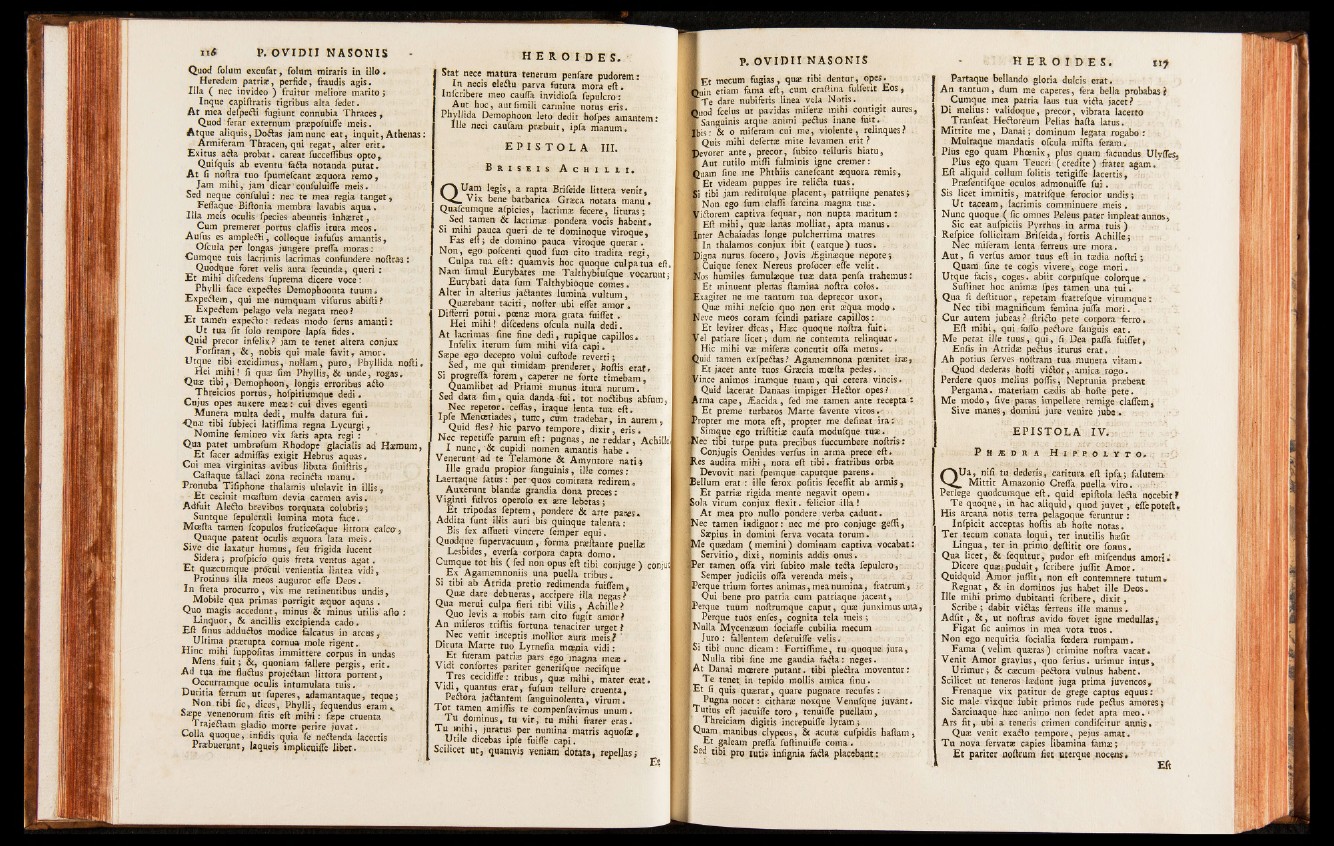 116 P. OVIDII NASONIS
Quod solum excusat, solum miraris in illo.
Heredem patriæ, perfide, fraudis agis.
Illa ( nec invideo ) fruitur meliore marito;
Inque capistratis tigribus alta sedet.
At mea despecti fugiunt connubia Thraces,
Quod ferar externum præposuisse meis.
Atque aliquis, Doctas jam nunc eat, inquit, Athenas:
Armiferam Thracen, qui regat, alter erit.
Exitus acta probat. careat successibus opto,
Quisquis ab eventu facta notanda putat.
At si nostra tuo spumescant æquora remo,
Jam mihi, jam dicar consuluisse meis.
Sed neque consului: nec te mea regia tanget,
Fessaque Bistonia membra lavabis aqua.
Illa meis oculis species abeuntis inhæret,
Cum premeret portus classis itura meos.
Ausus es amplecti, colloque infusus amantis,
Oscula per longas jungere pressa moras:
Cumque tuis lacrimis lacrimas confundere nostras:
Quodque foret velis aura secunda, queri:
Et mihi discedens suprema dicere voce:
Phylli face expectes Demophoonta tuum.
Expectem, qui me numquam visurus abisti?
Expectem pelago vela negata meo?
Et tamen expecto: redeas modo serus amanti:
Ut tua sit solo tempore lapsa fides.
Quid precor infelix? jam te tenet altera conjux
Forsitan, &, nobis qui male favit, amor.
Utque tibi excidimus, nullam, puto, Phyllida nosti.
Hei mihi! si quæ sim Phyllis, & unde, rogas.
Quæ tibi, Demophoon, longis erroribus acto
Threicios portus, hospitiumque dedi.
Cujus opes auxere meæ: cui dives egenti
Munera multa dedi, multa datura fui.
Quæ tibi subjeci latissima regna Lycurgi,
Nomine femineo vix satis apta regi:
Qua patet umbrosum Rhodope glacialis ad Hæmum,
Et sacer admissas exigit Hebrus aquas.
Cui mea virginitas avibus libata sinistris,
Castaque fallaci zona recincta manu.
Pronuba Tisiphone thalamis ululavit in illis,
Et cecinit mœstum devia carmen avis.
Adfuit Alecto brevibus torquata colubris;
Suntque sepulcrali lumina mota face.
Mœsta tamen scopulos fruticosaque littora calco,
Quaque patent oculis æquora lata meis.
Sive die laxatur humus, seu frigida lucent
Sidera; prospicio quis freta ventus agat.
Et quæcumque procul venientia lintea vidi,
Protinus illa meos auguror esse Deos.
In freta procurro, vix me retinentibus undis,
Mobile qua primas porrigit æquor aquas.
Quo magis accedunt, minus & minus utilis asto:
Linquor, & ancillis excipienda cado.
Est sinus adductos modice falcatus in arcus,
Ultima prærupta cornua mole rigent.
Hinc mihi suppositas immittere corpus in undas
Mens fuit; &, quoniam fallere pergis, erit.
Ad tua me fluctus projectam littora portent,
Occurramque oculis intumulata tuis.
Duritia ferrum ut superes, adamantaque, teque;
Non tibi sic, dices, Phylli, sequendus eram.
Sæpe venenorum sitis est mihi: sæpe cruenta
Trajectam gladio morte perire juvat.
Colla quoque, infidis quia se nectenda lacertis
Præbuerunt, laqueis implicuisse libet.
HEROIDES.
Stat nece matura tenerum pensare pudorem:
In necis electu parva futura mora est.
Inscribere meo caussa invidiosa sepulcro:
Aut hoc, aut simili carmine notus eris.
Phyllida Demophoon leto dedit hospes amantem:
Ille neci causam præbuit, ipsa manum.
EPISTOLA III.
BRISEIS ACHILLI.
QUam legis, a rapta Briseide littera venit,
Vix bene barbarica Græca notata manu.
Quascumque aspicies, lacrimæ fecere, lituras;
Sed tamen & lacrimæ pondera vocis habent.
Si mihi pauca queri de te dominoque viroque,
Fas est; de domino pauca viroque querar.
Non, ego poscenti quod sum cito tradita regi,
Culpa tua est: quamvis hoc quoque culpa tua est.
Nam simul Eurybates me Talthybiusque vocarunt;
Eurybati data sum Talthybioque comes.
Alter in alterius jactantes lumina vultum,
Quærebant taciti, noster ubi esset amor.
Differri potui. pœnæ mora grata fuisset.
Hei mihi! discedens oscula nulla dedi.
At lacrimas sine fine dedi, rupique capillos.
Infelix iterum sum mihi visa capi.
Sæpe ego decepto volui custode reverti;
Sed, me qui timidam prenderet, hostis erat.
Si progressa forem, caperer ne forte timebam,
Quamlibet ad Priami munus itura nurum.
Sed data sim, quia danda fui. tot noctibus absum,
Nec repetor. cessas, iraque lenta tua est.
Ipse Menœtiades, tunc, cum tradebar, in aurem,
Quid fles? hic parvo tempore, dixit, eris.
Nec repetisse parum est: pugnas, ne reddar, Achille
I nunc, & cupidi nomen amantis habe.
Venerunt ad te Telamone & Amyntore nati;
Ille gradu propior sanguinis, ille comes:
Laertaque satus: per quos comitata redirem.
Auxerunt blandæ grandia dona preces:
Viginti fulvos operoso ex ære lebetas;
Et tripodas septem, pondere & arte pares.
Addita sunt illis auri bis quinque talenta:
Bis sex assueti vincere semper equi.
Quodque supervacuum, forma præstante puellæ
Lesbides, eversa corpora capta domo.
Cumque tot his ( sed non opus est tibi conjuge ) conjux
Ex Agamemnoniis una puella tribus.
Si tibi ab Atrida pretio redimenda fuissem,
Quæ dare debueras, accipere illa negas?
Qua merui culpa fieri tibi vilis, Achille?
Quo levis a nobis tam cito fugit amor?
An miseros tristis fortuna tenaciter urget?
Nec venit inceptis mollior aura meis?
Diruta Marte tuo Lyrnesia mœnia vidi:
Et fueram patriæ pars ego magna meæ.
Vidi consortes pariter generisque necisque
Tres cecidisse: tribus, quæ mihi, mater erat.
Vidi, quantus erat, fusum tellure cruenta,
Pectora jactantem sanguinolenta, virum.
Tot tamen amissis te compensavimus unum.
Tu dominus, tu vir, tu mihi frater eras.
Tu mihi, juratus per numina matris aquosæ,
Utile dicebas ipse fuisse capi.
Scilicet ut, quamvis veniam dotata, repellas;
Et
P. OVIDII NASONIS
Et mecum fugias, quæ tibi dentur, opes.
Quin etiam fama est, cum crastina fulserit Eos,
Te dare nubiferis linea vela Notis.
Quod scelus ut pavidas miseræ mihi contigit aures,
Sanguinis atque animi pectus inane fuit.
Ibis: & o miseram cui me, violente, relinques?
Quis mihi desertæ mite levamen erit?
Devorer ante, precor, subito telluris hiatu,
Aut rutilo missi fulminis igne cremer:
Quam sine me Phthiis canescant æquora remis,
Et videam puppes ire relicta tuas.
Si tibi jam reditusque placent, patriique penates;
Non ego sum classi sarcina magna tuæ.
Victorem captiva sequar, non nupta maritum:
Est mihi, quæ lanas molliat, apta manus.
Inter Achaiadas longe pulcherrima matres
In thalamos conjux ibit ( eatque ) tuos.
Digna nurus socero, Jovis Æginæque nepote;
Cuique senex Nereus prosocer esse velit.
Nos humiles famulæque tuæ data pensa trahemus:
Et minuent plenas stamina nostra colos.
Exagitet ne me tantum tua deprecor uxor,
Quæ mihi nescio quo non erit æqua modo.
Neve meos coram scindi patiare capillos:
Et leviter dicas, Hæc quoque nostra fuit.
Vel patiare licet; dum ne contemta relinquar.
Hic mihi væ miseræ concutit ossa metus.
Quid tamen exspectas? Agamemnona pœnitet iræ,
Et jacet ante tuos Græcia mœsta pedes.
Vince animos iramque tuam, qui cetera vincis.
Quid lacerat Danaas impiger Hector opes?
Arma cape, Æacida, sed me tamen ante recepta:
Et preme turbatos Marte favente viros.
Propter me mota est, propter me desinat ira:
Simque ego tristitiæ causa modusque tuæ.
Nec tibi turpe puta precibus succumbere nostris:
Conjugis Oenides versus in arma prece est.
Res audita mihi, nota est tibi. fratribus orba
Devovit nati spemque caputque parens.
Bellum erat: ille ferox positis secessit ab armis,
Et patriæ rigida mente negavit opem.
Sola virum conjux flexit. felicior illa:
At mea pro nullo pondere verba cadunt.
Nec tamen indignor: nec me pro conjuge gessi,
Sæpius in domini serva vocata torum.
Me quædam ( memini ) dominam captiva vocabat:
Servitio, dixi, nominis addis onus.
Per tamen ossa viri subito male tecta sepulcro,
Semper judiciis ossa verenda meis,
Perque trium fortes animas, mea numina, fratrum,
Qui bene pro patria cum patriaque jacent,
Perque tuum nostrumque caput, quæ junximus una,
Perque tuos enses, cognita tela meis;
Nulla Mycenæum sociasse cubilia mecum
Juro: fallentem deseruisse velis.
Si tibi nunc dicam: Fortissime, tu quoque jura,
Nulla tibi sine me gaudia facta: neges.
At Danai mœrere putant. tibi plectra moventur:
Te tenet in tepido mollis amica sinu.
Et si quis quærat, quare pugnare recuses:
Pugna nocet: citharæ noxque Venusque juvant.
Tutius est jacuisse toro, tenuisse puellam,
Threiciam digitis increpuisse lyram;
Quam manibus clypeos, & acutæ cuspidis hastam,
Et galeam pressa sustinuisse coma.
Sed tibi pro tutis insignia facta placebant:
HEROIDES. 117
Partaque bellando gloria dulcis erat.
An tantum, dum me caperes, fera bella probabas?
Cumque mea patria laus tua victa jacet?
Di melius: validoque, precor, vibrata lacerto
Transeat Hectoreum Pelias hasta latus.
Mittite me, Danai; dominum legata rogabo:
Multaque mandatis oscula mista feram.
Plus ego quam Phœnix, plus quam facundus Ulysses,
Plus ego quam Teucri ( credite ) frater agam.
Est aliquid collum solitis tetigisse lacertis,
Præsentisque oculos admonuisse sui.
Sis licet immitis, matrisque ferocior undis;
Ut taceam, lacrimis comminuere meis.
Nunc quoque ( sic omnes Peleus pater impleat annos,
Sic eat auspiciis Pyrrhus in arma tuis )
Respice sollicitam Briseida, fortis Achille;
Nec miseram lenta ferreus ure mora.
Aut, si versus amor tuus est in tædia nostri;
Quam sine te cogis vivere, coge mori.
Utque facis, coges. abiit corpusque colorque.
Sustinet hoc animæ spes tamen una tui.
Qua si destituor, repetam fratresque virumque:
Nec tibi magnificum femina jussa mori.
Cur autem jubeas? stricto pete corpora ferro.
Est mihi, qui fosso pectore sanguis eat.
Me petat ille tuus, qui, si Dea passa fuisset,
Ensis in Atridæ pectus iturus erat.
Ah potius serves nostram tua munera vitam.
Quod dederas hosti victor, amica rogo.
Perdere quos melius possis, Neptunia præbent
Pergama. materiam cædis ab hoste pete.
Me modo, sive paras impellere remige classem,
Sive manes, domini jure venire jube.
EPISTOLA IV.
PHÆDRA HIPPOLYTO.
QUa, nisi tu dederis, caritura est ipsa; salutem
Mittit Amazonio Cressa puella viro.
Perlege quodcumque est. quid epistola lecta nocebit?
Te quoque, in hac aliquid, quod juvet, esse potest.
His arcana notis terra pelagoque feruntur:
Inspicit acceptas hostis ab hoste notas.
Ter tecum conata loqui, ter inutilis hæsit
Lingua, ter in primo destitit ore sonus.
Qua licet, & sequitur, pudor est miscendus amori.
Dicere quæ puduit, scribere jussit Amor.
Quidquid Amor jussit, non est contemnere tutum.
Regnat, & in dominos jus habet ille Deos.
Ille mihi primo dubitanti scribere, dixit,
Scribe; dabit victas ferreus ille manus.
Adsit, &, ut nostras avido fovet igne medullas,
Figat sic animos in mea vota tuos.
Non ego nequitia socialia fœdera rumpam.
Fama ( velim quæras ) crimine nostra vacat.
Venit Amor gravius, quo serius. urimur intus,
Urimur; & cæcum pectora vulnus habent.
Scilicet ut teneros lædunt juga prima juvencos,
Frenaque vix patitur de grege captus equus:
Sic male vixque subit primos rude pectus amores;
Sarcinaque hæc animo non sedet apta meo.
Ars fit, ubi a teneris crimen condiscitur annis.
Quæ venit exacto tempore, pejus amat.
Tu nova servatæ capies libamina famæ;
Et pariter nostrum fiet uterque nocens.
Est